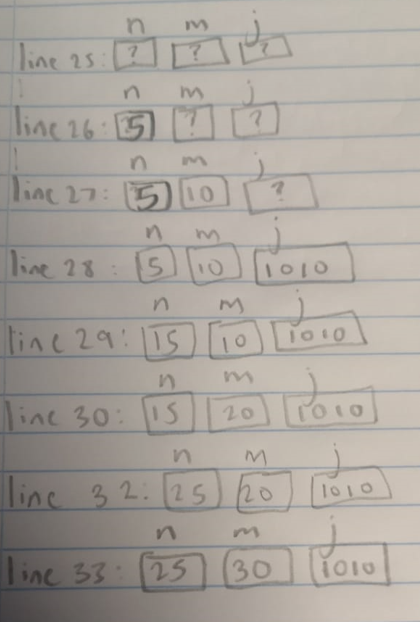 n m j
line 25: ? ? ?
n m j
line 26: 5 ? ?
n m j
line 27: 5 10 ?
n m j
line 28: 5 10 1010
n m j
line 29: 15 10 1010
n m j
line 30: 15 20 1010
n m j
line 32: 25 20 1010
n m j
line 33: 25 30 1010